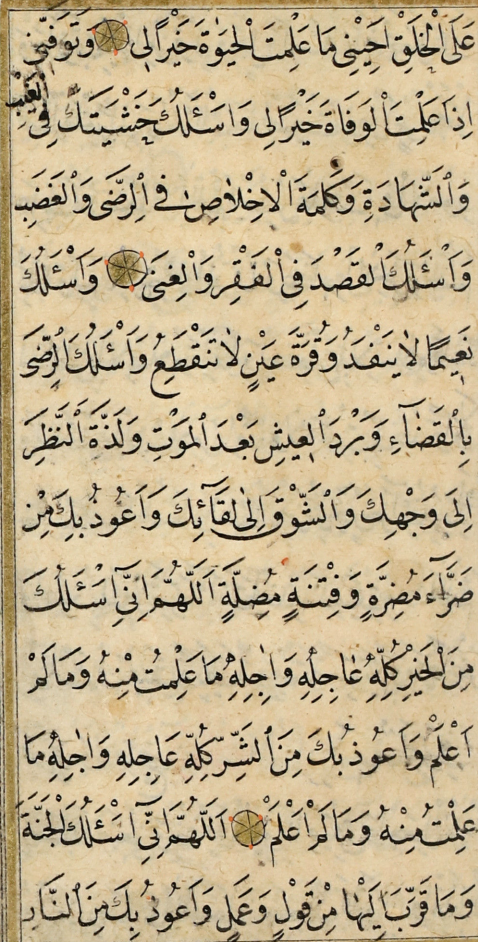 عَلَى الْخَلْقِ اَحْيِنِى مَا عَلِمْتَ الْحَيٰوةَ خَيْرًا لِى وَتَوَفَّنِى
اِذَا عَلِمْتَ الْوَفَاةَ خَيْرًا لِى وَاَسْئَلُكَ خَشْيَتَكَ فِى الْغَيْبِ
وَالشَّهَادَةِ وَكَلِمَةَ الْاِخْلَاصِ فِى الرِّضَى وَالْغَضَبِ
وَاَسْئَلُكَ الْقَصْدَ فِى الْفَقْرِ وَالْغِنَى وَاَسْئَلُكَ
نَعِيمًا لَا يَنْفَدُ وَقُرَّةَ عَيْنٍ لَا تَنْقَطِعُ وَاَسْئَلُكَ الرِّضَى
بِالْقَضَآءِ وَبَرْدَ الْعَيْشِ بَعْدَ الْمَوْتِ وَلَذَّةَ النَّظَرِ
اِلَى وَجْهِكَ وَالشَّوْقَ اِلٰى لِقَآئِكَ وَاَعُوذُ بِكَ مِنْ
ضَرَّآءَ مُضِرَّةٍ وَفِتْنَةٍ مُضِلَّةٍ اَللّٰهُمَّ اِنِّىٓ اَسْئَلُكَ
مِنَ الْخَيْرِ كُلِّهِ عَاجِلِهِ وَاٰجِلِهِ مَا عَلِمْتُ مِنْهُ وَمَا لَمْ
اَعْلَمْ وَاَعُوذُ بِكَ مِنَ الشَّرِّ كُلِّهِ عَاجِلِهِ وَاٰجِلِهِ مَا
عَلِمْتُ مِنْهُ وَمَا لَمْ اَعْلَمْ اَللّٰهُمَّ اِنِّىٓ اَسْئَلُكَ الْجَنَّةَ
وَمَا قَرَّبَ اِلَيْهَا مِنْ قَوْلٍ وَعَمَلٍ وَاَعُوذُ بِكَ مِنَ النَّارِ